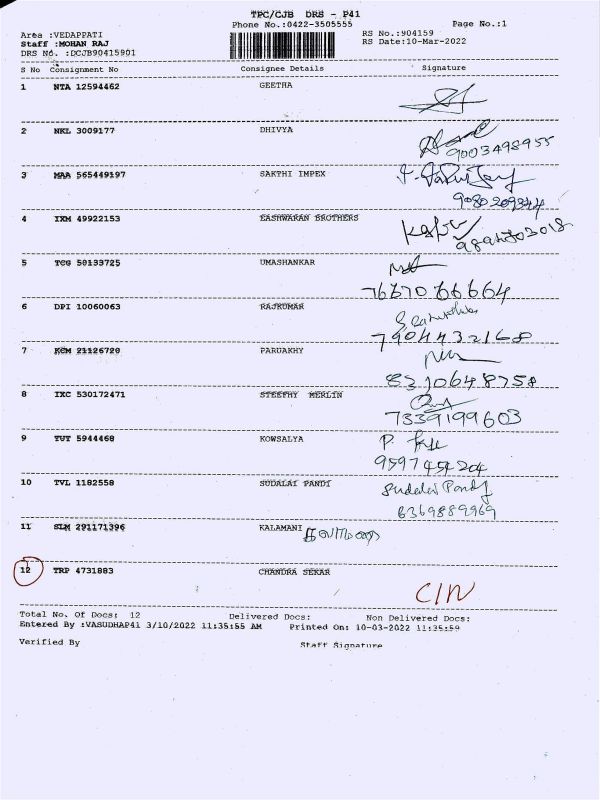 TPC/CJB DRS - P41
Phone No.:0422-3505555
Page No.:1
Area :VEDAPPATI
RS No.:904159
Staff :MOHAN RAJ
RS Date:10-Mar-2022
DRS No. :DCJB90415901
S No Consignment No Consignee Details Signature
1 NTA 12594462 GEETHA
2 NKL 3009177 DHIVYA
9003498955
3 MAA 565449197 SAKTHI IMPEX
9080209844
4 IXM 49922153 EASHWARAN BROTHERS
5 TCG 50133725 UMASHANKAR
7667066664
6 DPI 10060063 RAJKUMAR
7904432168
7 KCM 21126720 PARUAKHY
8310648758
8 IXC 530172471 STEEFHY MERLIN
7339199603
9 TUT 5944468 KOWSALYA
9597454204
10 TVL 1182558 SUDALAI PANDI
Sudalai Pandy
6369889969
11 SLM 291171396 KALAMANI
12 TRP 4731883 CHANDRA SEKAR
C/N
Total No. Of Docs: 12 Delivered Docs: Non Delivered Docs:
Entered By :VASUDHAP41 3/10/2022 11:35:55 AM Printed On: 10-03-2022 11:35:59
Verified By Staff Signature